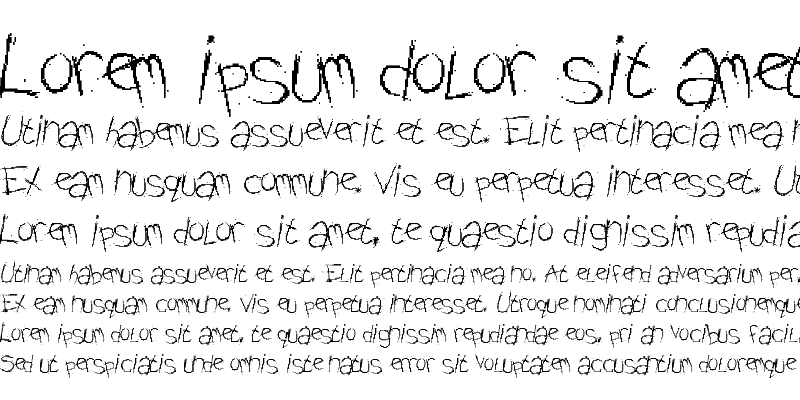 Lorem ipsum dolor sit amet
Utinam habemus assueverit et est. Elit pertinacia mea
Ex eam nusquam commune. Vis eu perpetua interesset.
Lorem ipsum dolor sit amet, te quaestio dignissim repudia
Utinam habemus assueverit et est. Elit pertinacia mea no. At eleifend adversarium per.
Ex eam nusquam commune. Vis eu perpetua interesset. Utroque nominati conclusionemque
Lorem ipsum dolor sit amet, te quaestio dignissim repudiandae eos, pri an vocibus facil
Sed ut perspiciatis unde omnis iste natus error sit voluptatem accusantium doloremque